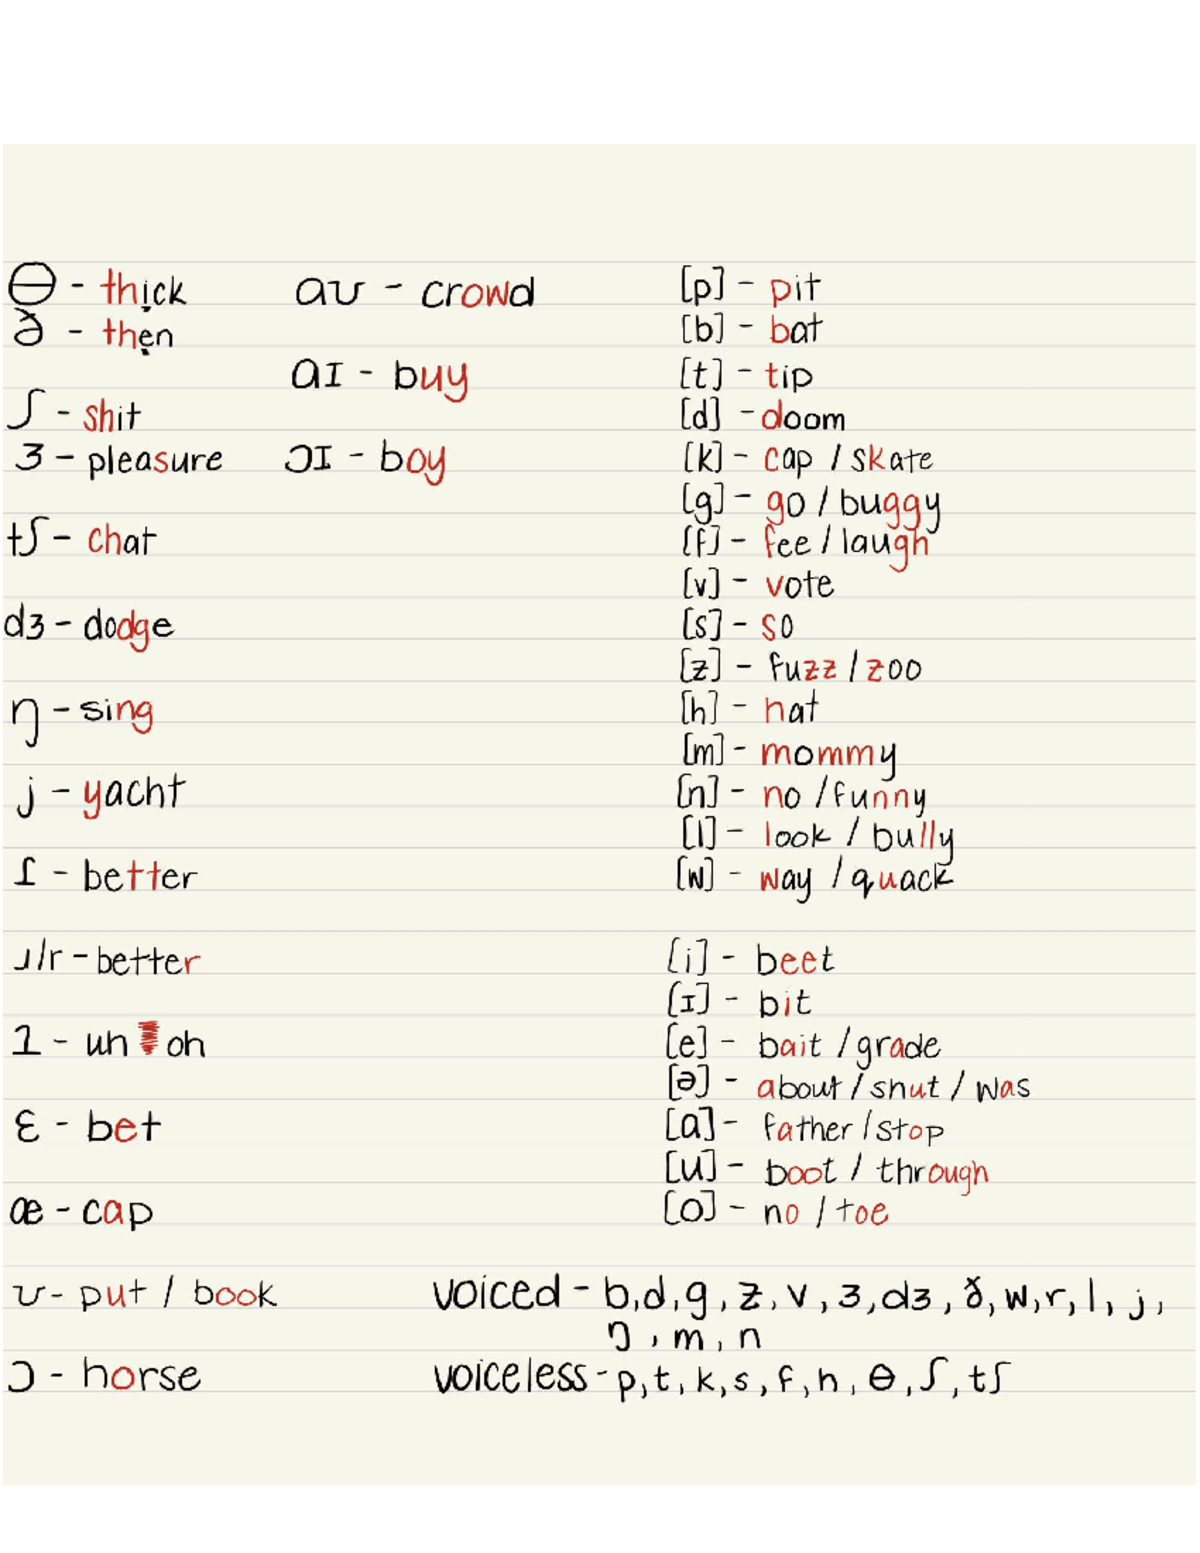 θ - thick
ð - then
ʃ - shit
ʒ - pleasure
tʃ - chat
dʒ - dodge
ŋ - sing
j - yacht
ɾ - better
ɹ/r - better
ʔ - uh oh
ɛ - bet
æ - cap
ʊ - put / book
ɔ - horse
aʊ - crowd
aɪ - buy
ɔɪ - boy
[p] - pit
[b] - bat
[t] - tip
[d] - doom
[k] - cap / skate
[g] - go / buggy
[f] - fee / laugh
[v] - vote
[s] - so
[z] - fuzz / zoo
[h] - hat
[m] - mommy
[n] - no / funny
[l] - look / bully
[w] - way / quack
[i] - beet
[ɪ] - bit
[e] - bait / grade
[ə] - about / shut / was
[a] - father / stop
[u] - boot / through
[o] - no / toe
voiced - b, d, g, z, v, ʒ, dʒ, ð, w, r, l, j,
ŋ, m, n
voiceless - p, t, k, s, f, h, θ, ʃ, tʃ